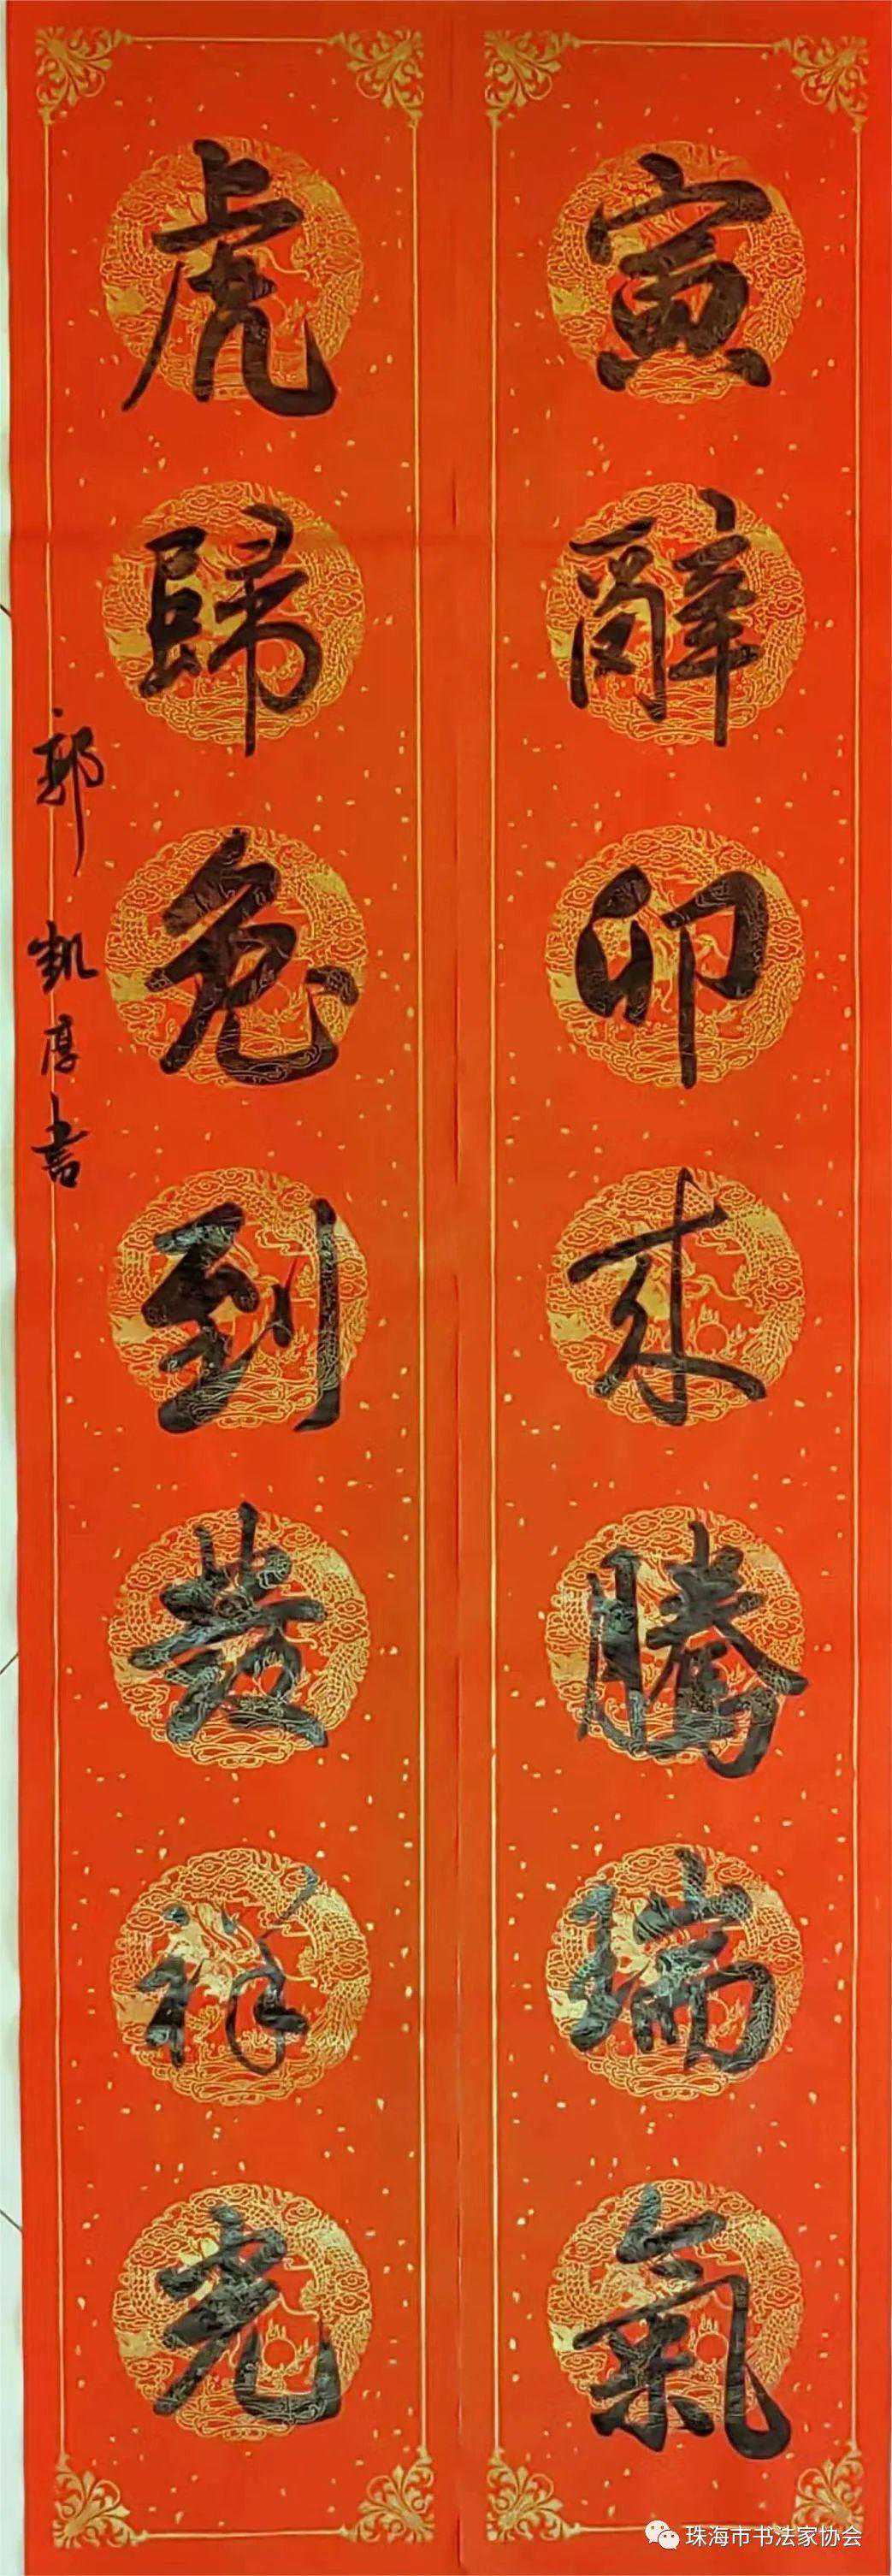 寅辭卯來騰瑞氣
虎歸兔到發祥光
郭凱淳書
珠海市书法家协会